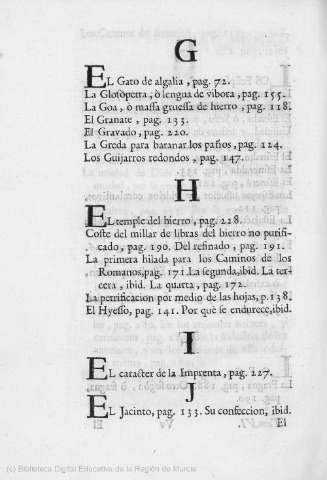 G
EL Gato de algalia, pag. 72.
La Glosopetra, ò lengua de vibora, pag. 155.
La Goa, ò massa gruessa de hierro, pag. 118.
El Granate, pag. 133.
El Gravado, pag. 220.
La Greda para batanar los paños, pag. 124.
Los Guijarros redondos, pag. 147.
H
EL temple del hierro, pag. 228.
Coste del millar de libras del hierro no purifi-
cado, pag. 190. Del refinado, pag. 191.
La primera hilada para los Caminos de los
Romanos, pag. 171. La segunda, ibid. La ter-
cera, ibid. La quarta, pag. 172.
La petrificacion por medio de las hojas, p. 138.
El Hyesso, pag. 141. Por què se endurece, ibid.
I
EL caracter de la Imprenta, pag. 227.
J
EL Jacinto, pag. 133. Su confeccion, ibid.
El
(c) Biblioteca Digital Educativa de la Región de Murcia